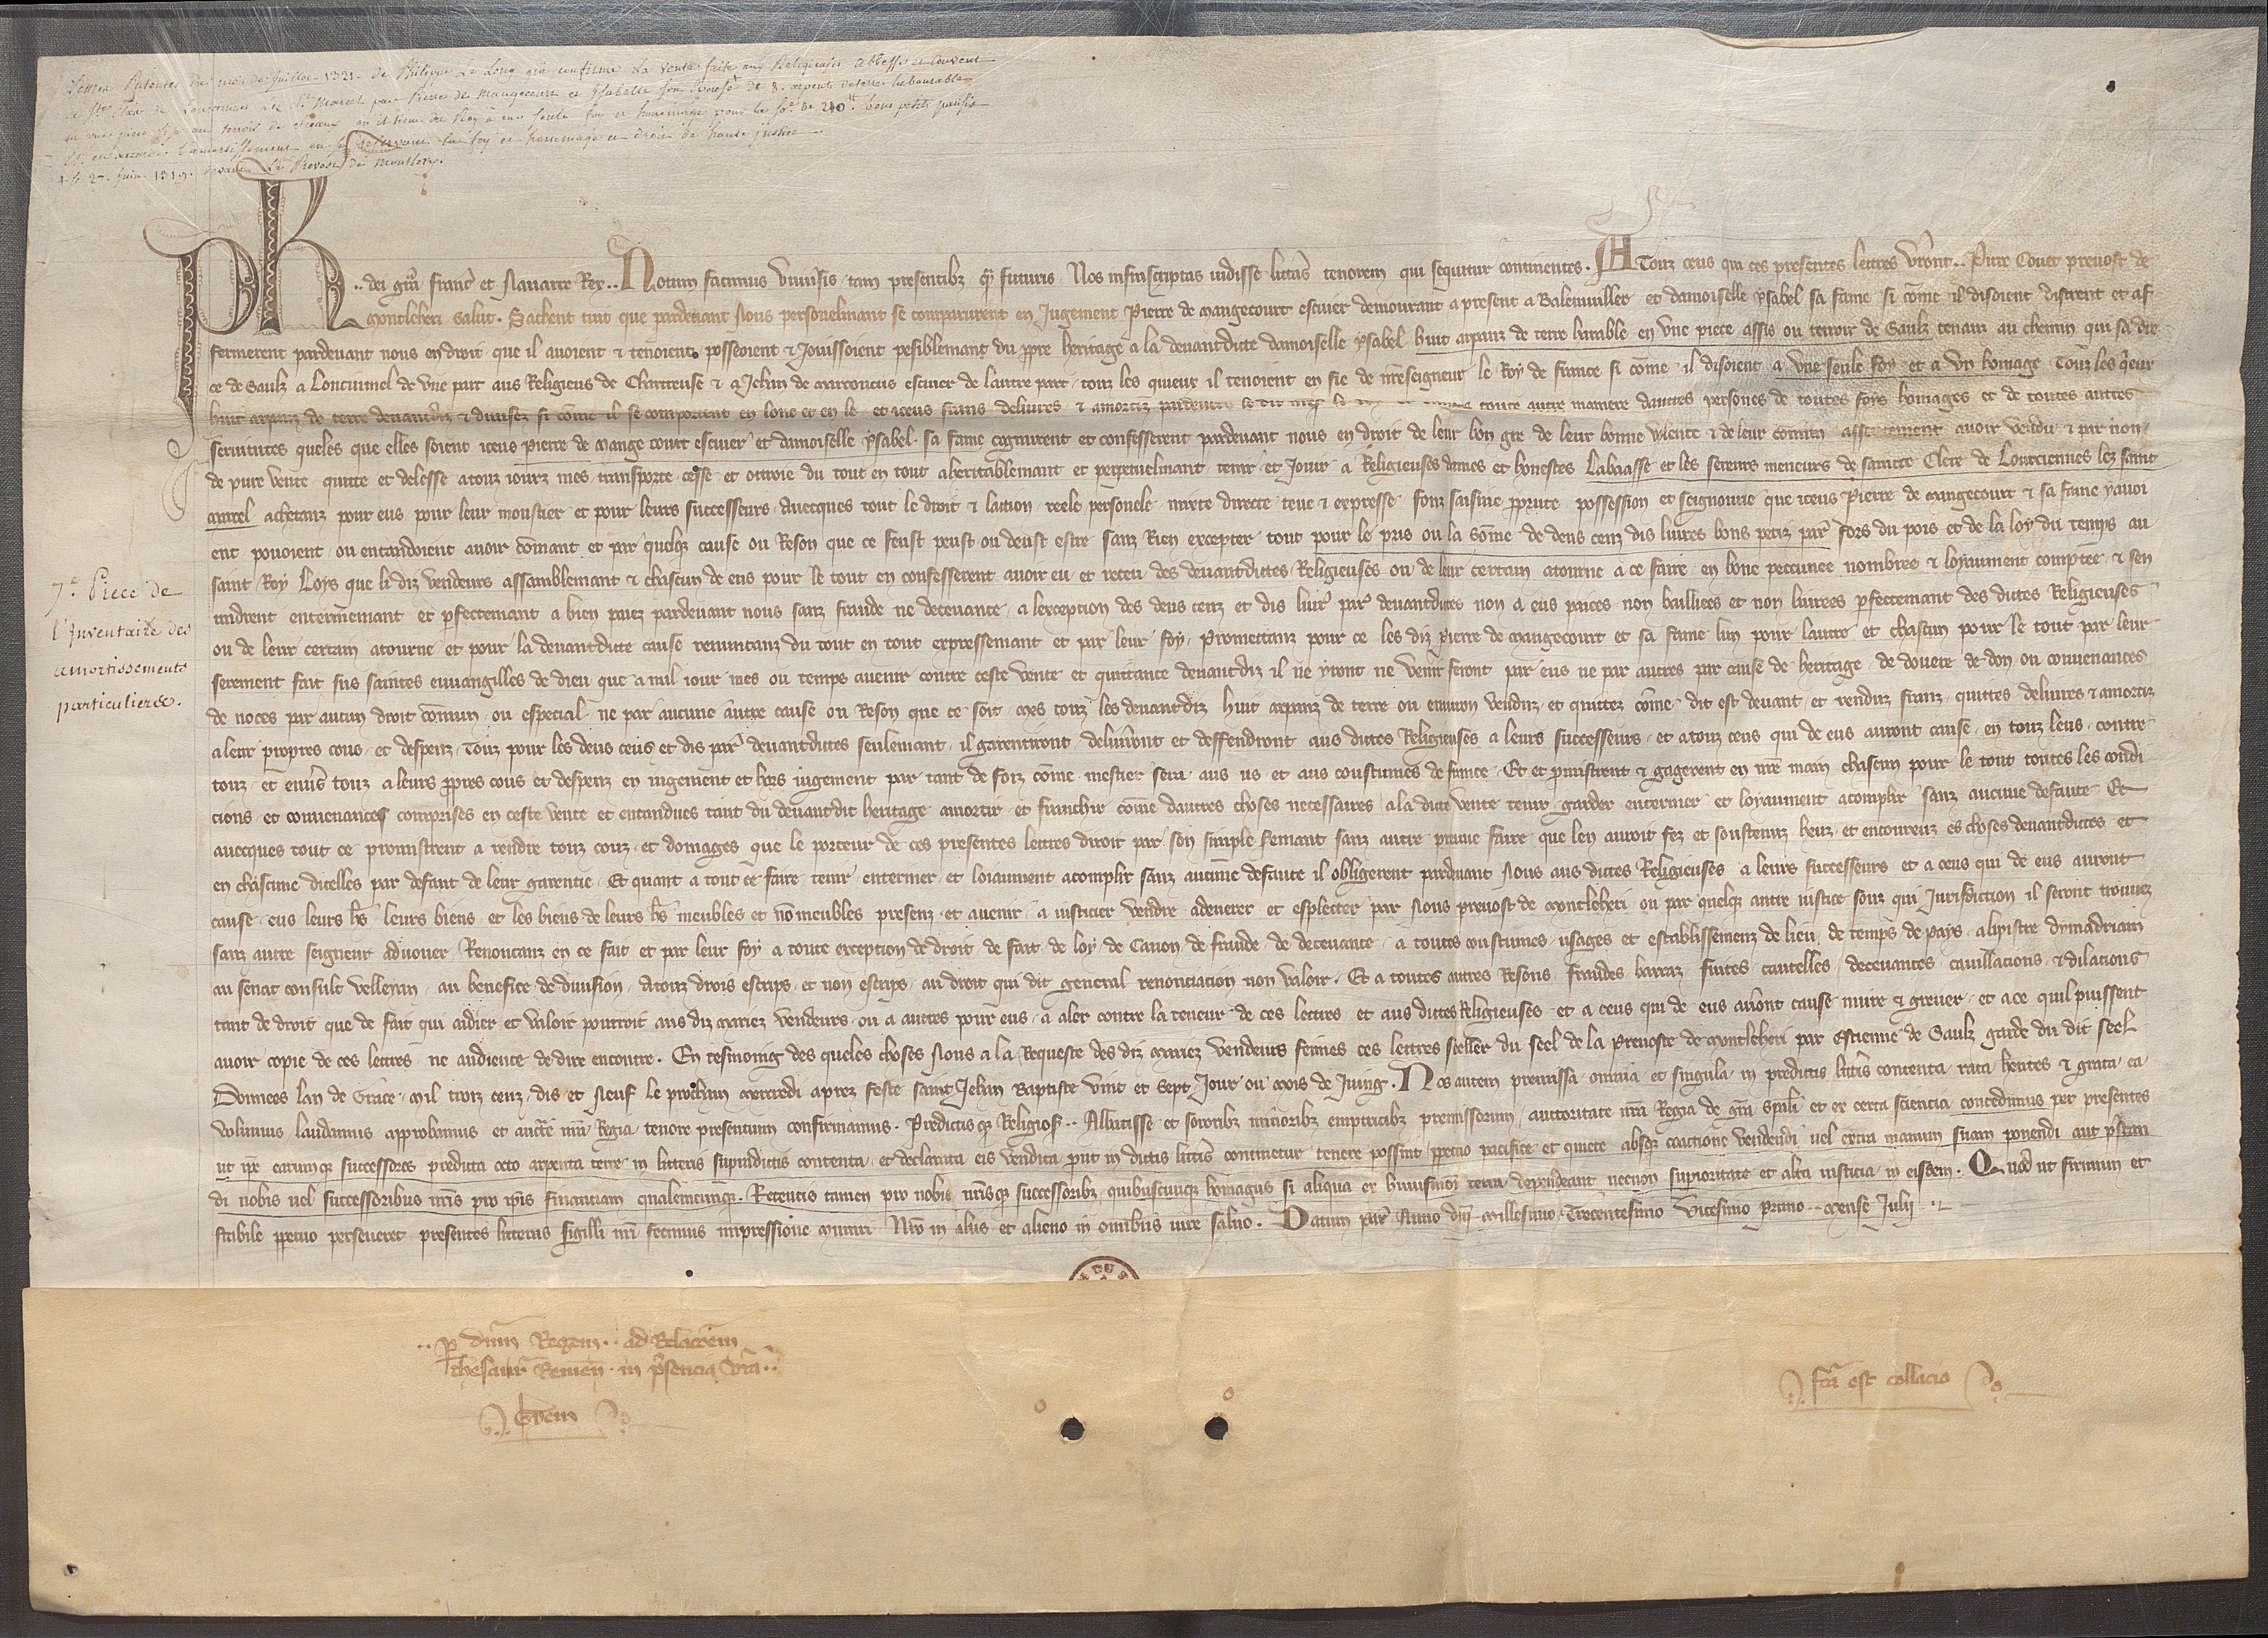 Lettres Patentes du mois de Juillet 1321. de Philippe Le Long qui confirme La vente faite aux Religieuses Abbesse et Couvent
de Ste Clare de Lourcines Lez St Marcel par Pierre de Maugecourt et Ysabelle son de 8. arpents de terre labourable
en une piece au terroir de qu'il tient du Roy à une seule foy et hommage pour la so.e de 210 tt bons petits parisis
et en accorde l'amortissement en se reservant la foy et hommage et droit de haute justice
27. Juin 1319. devant Le Prevost de Montlery.
Ph .. dei gra Franc et Navarre Rex .. Notum facimus universis tam presentibz qm futuris Nos infrascriptas vidisse litteras tenorem qui sequitur continentes. A Touz ceus qui ces presentes lettres verront .. Pierre Couet prevost de
Montleheri salut. Sachent tuit que pardevant Nous personelmant se comparurent en Jugement Pierre de Maugecourt escuier demourant a present a Balenviller et damoiselle Ysabel sa fame si come il disoient distrent et af
fermerent pardevant nous en droit que il avoient & tenoient possedoient & Jouissoient pesiblemant du ppre heritage a la devantdicte damoiselle Ysabel huit arpanz de terre arable en une piece assis ou terroir de Saulz tenanz au chemin qui sa dre
ce de Saulz a Loncjumel de une part aus Religieus de Chartreuse & a Jehan de Marconcus escuier de lautre part touz les quieux il tenoient en fie de nreseigneur le Roy de france si come il disoient a une seule foy et a un homage Touz les qieux
huit arpanz de terre devantdiz & divisez si come il se comportent en lonc et en le et iceus frans delivres & amortiz pardevers le dit toute autre maniere dautres persones de toutes foys homages et de toutes autres
servitutes queles que elles soient iceus Pierre de Mangecourt escuier et damoiselle Ysabel sa fame cognurent et confesserent pardevant nous en droit de leur bon gre de leur bonne volente & de leur comun assentement avoir vendu & par non
de pure vente quitte et delesse a touz jourz mes transporte cesse et ottroie du tout en tout aheritablemant et perpetuelmant tenir et Jouir a Religieuses dames et honestes Labaasse et les sereurs meneurs de saincte Clere de Lourcienes lez saint
Marcel achetanz pour eus pour leur moustier et pour leurs successeurs avecques tout le droit & laction reele personele mixte directe teue & expresse fonz saisine pprete possession et seignourie que iceus Pierre de Maugecourt & sa fame y avoi
ent povoient ou entandoient avoir comant et par quelqz cause ou Reson que ce feust peust ou deust estre sanz Rien excepter tout pour le pris ou la some de deus cenz dis livres bons petiz par fors du pois et de la loy du temps au
saint Roy Loys que li diz vendeurs assamblemant & chascun de eus pour le tout en confesserent avoir eu et receu des devantdictes Religieuses ou de leur certain atourne a ce faire en bone peccunee nombree & loyaument comptee & sen
tindrent enterinemant et pfectemant a bien paiez pardevant nous sanz fraude ne decevance a lexception des deus cenz et dis livr par devantdictes non a eus paiees non bailliees et non livrees pfectemant des dictes Religieuses
ou de leur certain atourne et pour la devantdicte cause renuncanz du tout en tout expressemant et par leur foy Promettanz pour ce les diz Pierre de Maugecourt et sa fame lun pour lautre et chascun pour le tout par leur
serement fait sus saintes euvangilles de dieu que a nul jour mes ou temps avenir contre ceste vente et quittance devantdiz il ne yront ne venir feront par eus ne par autres par cause de heritage de douere de don ou convenances
de noces par aucun droit comun ou especial ne par aucune autre cause ou Reson que ce soit Mes touz les devantdiz huit arpanz de terre ou environ venduz et quittez come dit est devant et renduz franz quittes delivres & amortiz
a leur propres cous et despenz Touz pour les deus cens et dis par devantdictes seulemant il garentiront delivront et deffendront aus dictes Religieuses a leurs successeurs et a touz ceus qui de eus auront cause en touz leus contre
touz et envers touz a leurs ppres cous et despenz en jugement et hors jugement par tant de foiz come mestier sera aus us et aus coustumes de france Et et promistrent & gagerent en nre main chascun pour le tout toutes les condi
cions et convenances comprises en ceste vente et entandues tant du devantdit heritage amortir et franchir come dautres choses necessaires a la dicte vente tenir garder enteriner et loyaument acomplir sanz aucune defaute Et
avecques tout ce promistrent a rendre touz couz et domages que le porteur de ces presentes lettres diroit par son simple seremant sanz autre prueve faire que len auroit fez et soustenuz heuz et encoureuz es choses devantdictes et
en chascune dicelles par defaut de leur garentie Et quant a tout ce faire tenir enteriner et loiaument acomplir sanz aucune defaute il obligerent pardevant Nous aus dictes Religieuses a leurs successeurs et a ceus qui de eus auront
cause eus leurs hrs leurs biens et les biens de leurs hrs meubles et nomeubles presenz et avenir a justicier vendre adenerer et esplecter par Nous prevost de Montleheri ou par quelqz autre justice souz qui Jurisdiction il seront trouvez
sanz autre seigneur advouer Renoncanz en ce fait et par leur foy a toute exception de droit de fait de loy de Canon de fraude de decevance a toutes coustumes usages et establissemenz de lieu de temps de pays a lepistre dyuadriain
au senat consult velleyan au benefice de division a touz drois escrips et non escrips au droit qui dit general renonciacion non valoir. Et a toutes autres Resons fraudes barraz fuites cautelles decevances cavillacions & dilacions
tant de droit que de fait qui aidier et valoir pourroit aus diz Mariez vendeurs ou a autres pour eus a aler contre la teneur de ces lettres et aus dictes Religieuses et a ceus qui de eus auront cause nuire & grever et a ce quil puissent
avoir copie de ces lettres ne audience de dire encontre. En tesmoing des queles choses Nous a la Requeste des diz Mariez vendeurs feimes ces lettres sceller du seel de la Prevoste de Montleheri par Estienne de Saulz garde du dit seel
Donnees lan de Grace Mil trois cenz dis et Neuf le prochain Mercredi aprez feste saint Jehan Baptiste vint et sept Jour ou Mois de Juing. Nos autem premissa omnia et singula in predictis litteris contenta rata hentes & grata ea
volumus laudamus approbamus et aucte nra Regia tenore presentium confirmamus. Predictisqz Religios .. Abbatisse et sororibz minoribz emptricibz premissorum auctoritate nra Regia de gra spali et ex certa sciencia concedimus per presentes
ut ipe earumqz successores predicta octo arpenta terre in litteris supradictis contenta et declarata eis vendita prout in dictis litteris continetur tenere possint ppetuo pacifice et quiete absqz coactione vendendi vel extra manum suam ponendi aut pstan
di nobis vel successoribus nris pro ipsis financiam qualemcunqz. Retentis tamen pro nobis nrisqz successoribz quibuscunqz homagiis si aliqua ex huiusmoi terra dependeant necnon superioritate et alta justicia in eisdem. Quod ut firmum et
stabile ppetuo perseveret presentes litteras sigilli nri fecimus impressione muniri Nro in aliis et alieno in omibus iure salvo. Datum Par Anno dni Millesimo Trecentesimo Vicesimo primo Mense Julii
7e Piece de
l'Inventaire des
amortissements
particuliers.
.. p dnm Regem .. ad Relacoem
thesaur Remen in psencia vra ..
Gvem
fca est collacio